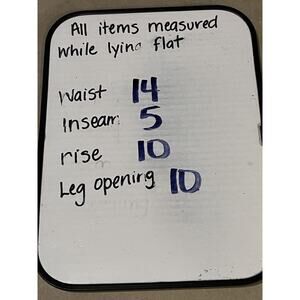 All items measured
while lying flat
Waist 14
Inseam 5
rise 10
Leg opening 10